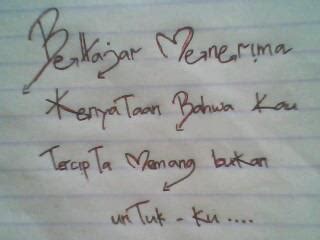 Belajar Menerima
KenyaTaan Bahwa Kau
TercipTa Memang bukan
unTuk-Ku....